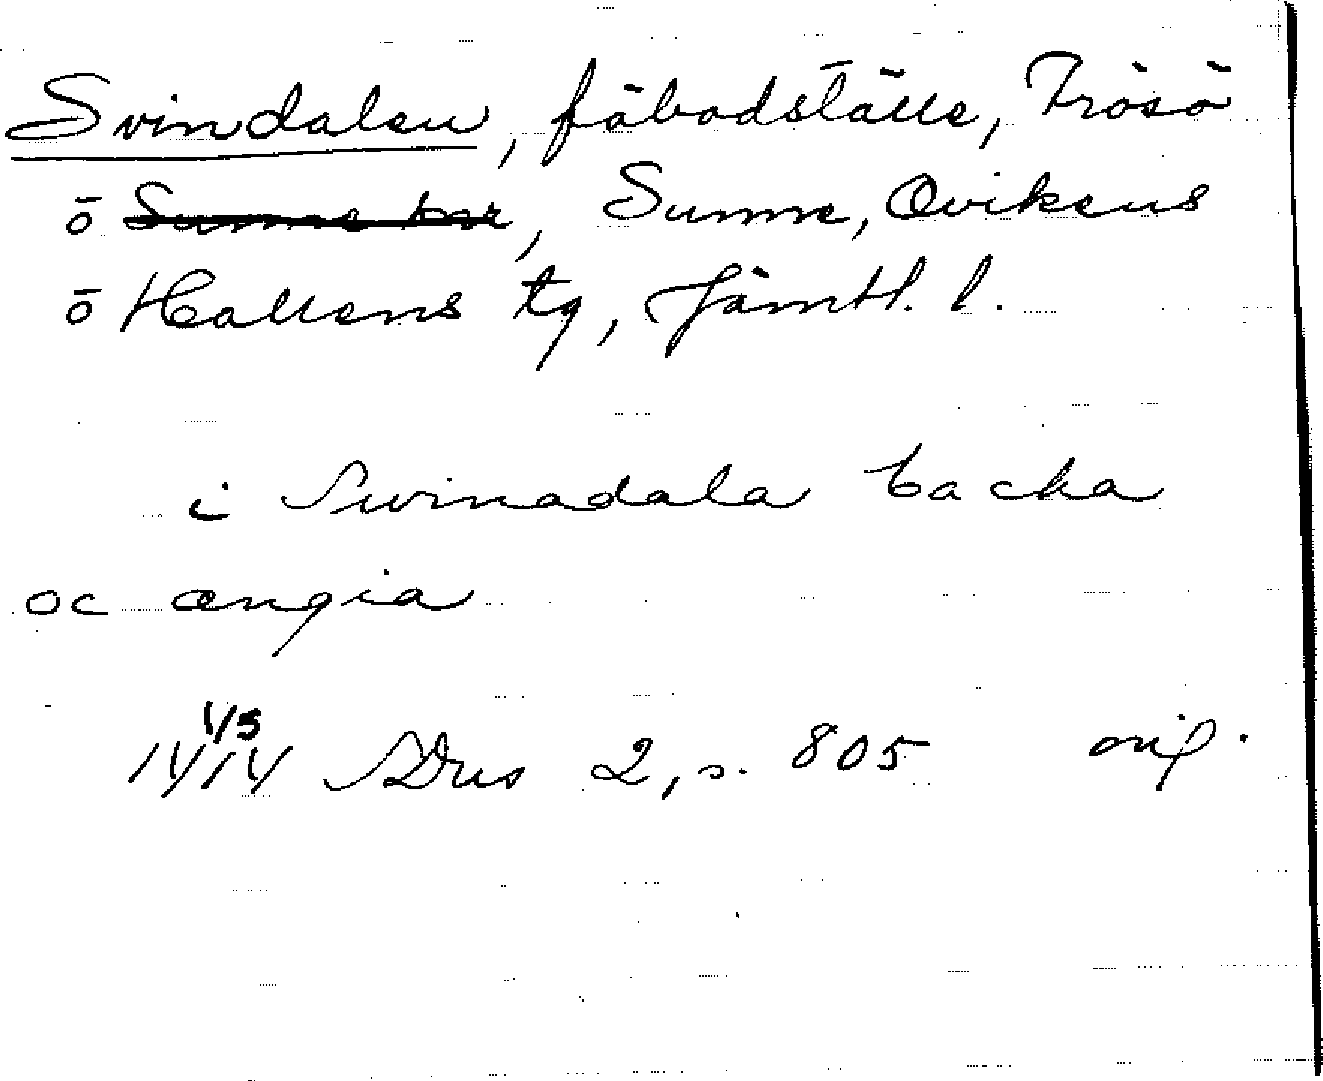 Svindalen, fäbodställe, Frösö
o Sunne tnr, Sunne, Ovikens
o Hallens tg, Jämtl. l.
i Swinadala backa
oc ængia
14 1/5 14 SDns 2, s. 805 orig.